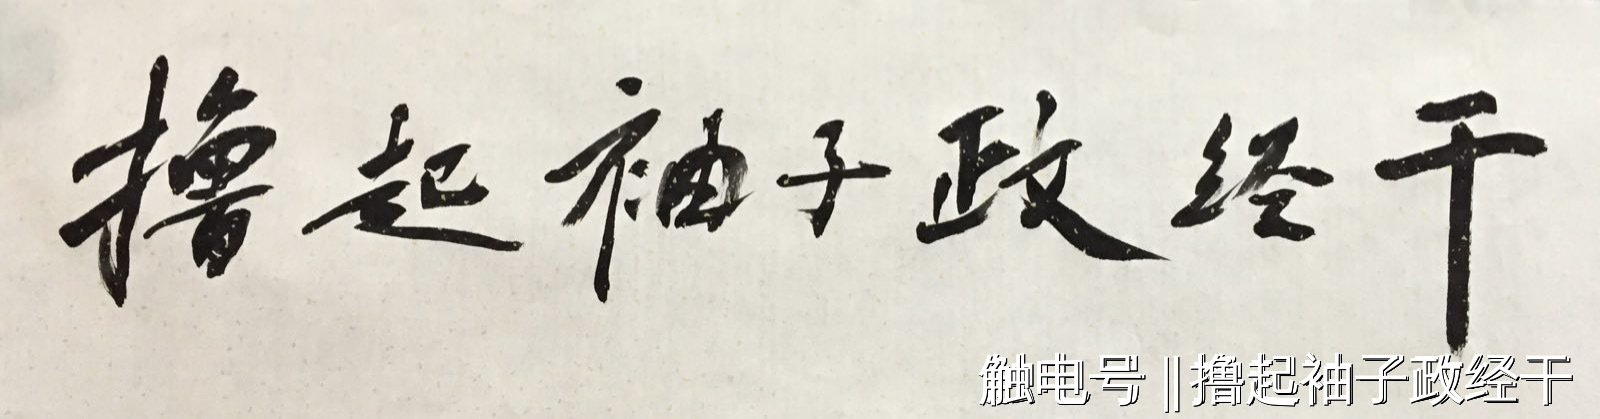 撸起袖子政经干
触电号||撸起袖子政经干